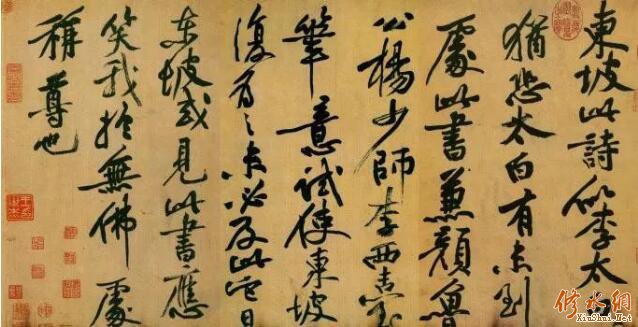 東坡此詩似李太
猶恐太白有未到
處此書兼顏魯
公楊少師李西臺
筆意試使東坡
復為之未必及此它日
東坡或見此書應
笑我於無佛處
稱尊也
修水網
XiuShui.Net